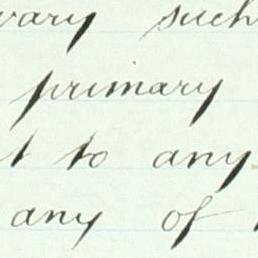 such
primary
to any
any of